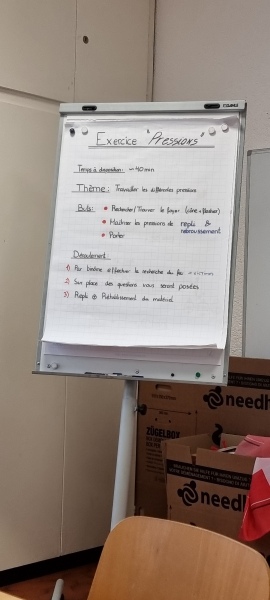 Exercice "Pressions"
Temps à disposition: ~40 min
Thème: Travailler les différentes pressions
Buts: • Rechercher/Trouver le foyer (cône +
• Maîtriser les pressions de repli &
rebroussement
• Parler
Déroulement:
1) Par binôme effectuer la recherche du feu
2) Sur place des questions vous seront posées
3) Repli ⊕ Rétablissement du matériel
needh
ZÜGELBOX
needh